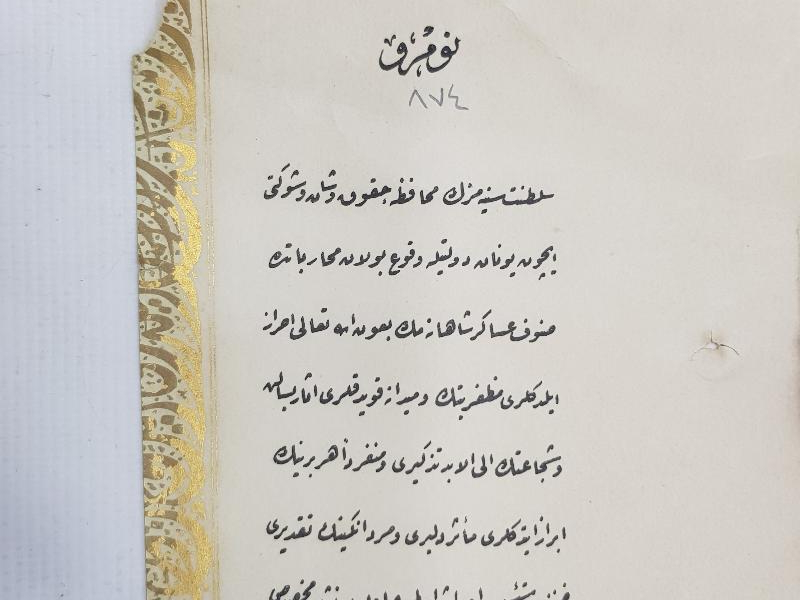 نومرو
٨٧٤
سلطنت سنیه مزك محافظهٔ حقوق وشان وشوکتی
ایچون یونان دولتیله وقوع بولان محارباتده
صنوف عساکر شاهانه مك بعون الله تعالی احراز
ایلدکلری مظفریتك ومیدانه قویدقلری اثار بسالت
وشجاعتك الی الابد تذکیری ومنفرداً هر برینك
ابراز ایتدکلری مأثر دلیری ومردانکینك تقدیری